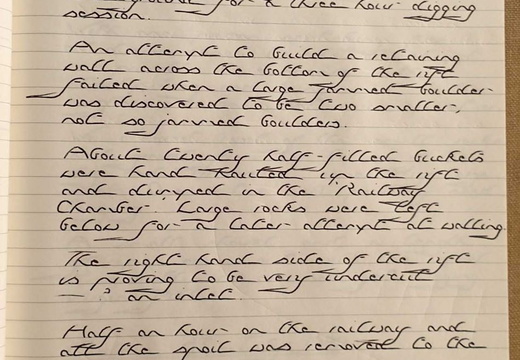 for a three hour digging
session.
An attempt to build a retaining
wall across the bottom of the rift
failed when a large jammed boulder
was discovered to be two smaller,
not so jammed boulders.
About twenty half-filled buckets
were hand hauled up the rift
and dumped in the 'Railway
Chamber'. Large rocks were left
below for a later attempt at walling.
The right hand side of the rift
is proving to be very undercut
— ? an inlet.
Half an hour on the railway and
all the spoil was removed to the